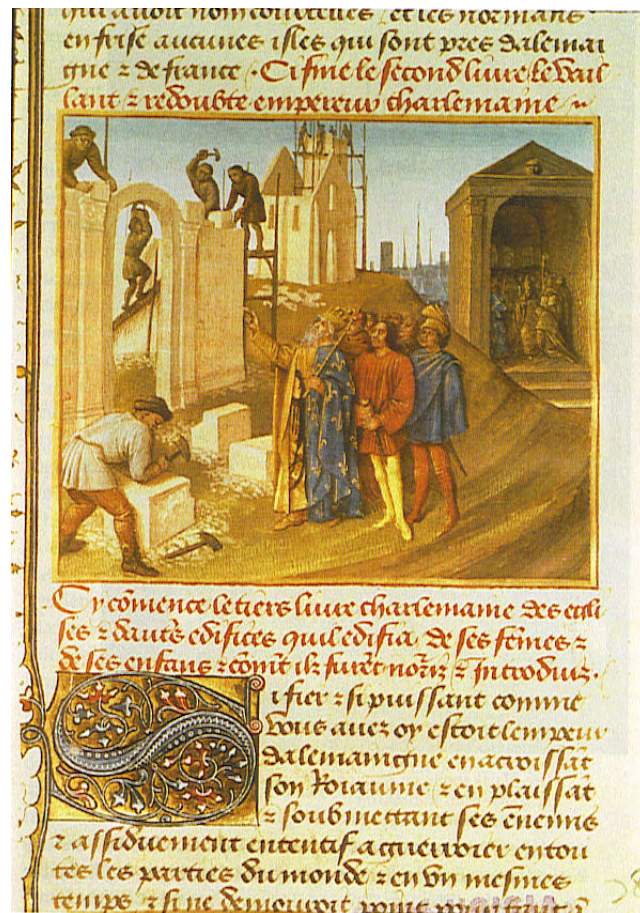 qui avoit nom courtelles, et les normans
en frise aucunes isles qui sont pres dalemai
gne ⁊ de france. Ci fine le second livre le vail
lant ⁊ redoubte empereur charlemaine
Cy cōmence le tiers livre charlemaine des egli
ses ⁊ dautˢ edifices quil edifia, de ses fēmes ⁊
de ses enfans ⁊ cōmt ilz furēt noriz ⁊ introduiz.
S i fier ⁊ si puissant comme
vous avez oy estoit lempeur
dalemaigne en acroissāt
son Roiaume ⁊ en plaissāt
⁊ soubmectant ses ēnemis
⁊ assiduement ententif a guerroier en tou
tes les parties du monde ⁊ en vn mesmes
temps ⁊ si ne demouroit